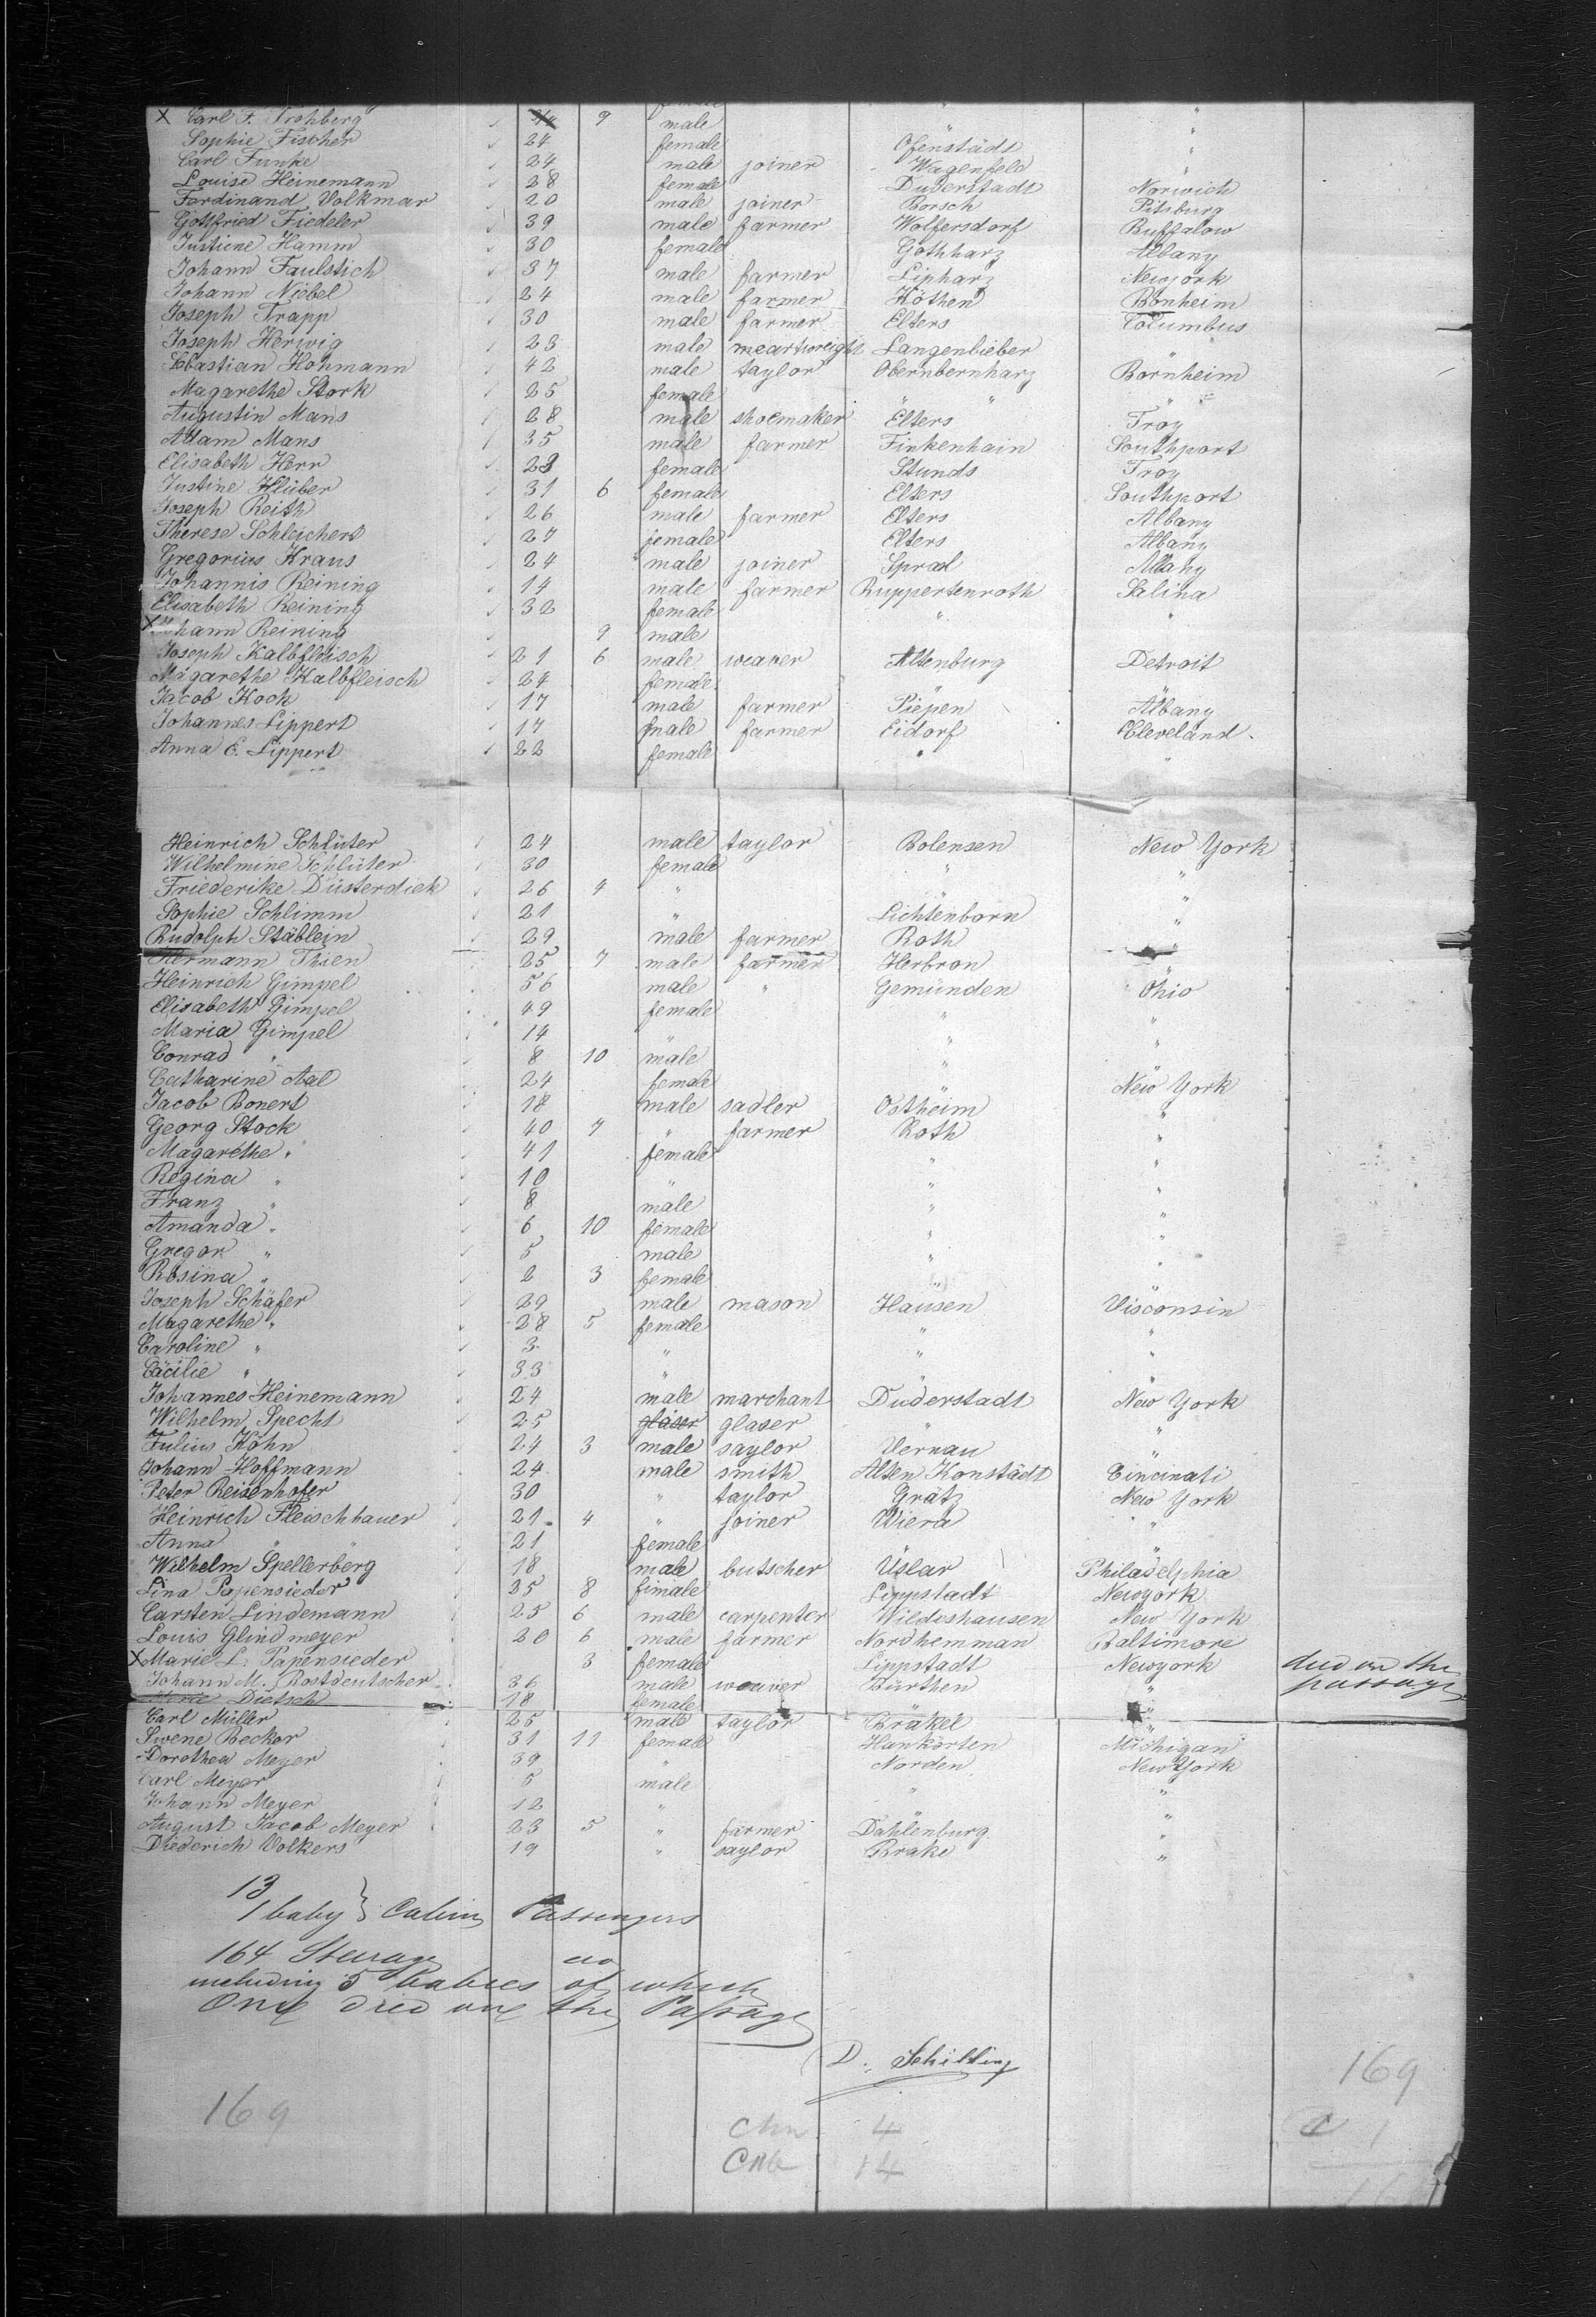 X Carl F. Trohberg 9 male "
Sophie Fischer 24 female Ofenstädt "
Carl Funke 24 male joiner Wagenfeld "
Louise Heinemann 28 female Duderstadt Norwich
Ferdinand Volkmar 20 male joiner Borsch Pitsburg
Gottfried Fiedeler 39 male farmer Wolfersdorf Buffalow
Justine Hamm 30 female Gothharz Albany
Johann Faulstich 37 male farmer Lipharz Newyork
Johann Niebel 24 male farmer Köthen Bonheim
Joseph Trapp 30 male farmer Elters Columbus
Joseph Herwig 23 male Langenbieber
Sebastian Hohmann 42 male taylor Obernbernharz Bornheim
Magarethe Stork 25 female " " "
Augustin Mans 28 male shoemaker Elters Troy
Adam Mans 35 male farmer Finkenhain Southport
Elisabeth Herr 23 female Stunds Troy
Justine Hlüber 31 6 female Elters Southport
Joseph Reith 26 male farmer Elters Albany
Therese Schleichert 27 female Elters Albany
Gregorius Kraus 24 male joiner Sprad Albany
Johannis Reining 14 male farmer Ruppertenroth Salina
Elisabeth Reining 32 female " "
X Johann Reining 9 male
Joseph Kalbfleisch 21 6 male weaver Altenburg Detroit
Magarethe Kalbfleisch 24 female " "
Jacob Kock 17 male farmer Siepen Albany
Johannes Lippert 17 male farmer Eidorf Cleveland
Anna E. Lippert 22 female " "
Heinrich Schlüter 24 male taylor Bolensen New York
Wilhelmine Schlüter 30 female " "
Friederike Düsterdiek 26 4 " "
Sophie Schlimm 21 " Lichtenborn "
Rudolph Stäblein 29 male farmer Roth "
Hermann Thien 25 7 male farmer Herbron
Heinrich Gimpel 56 male " Gemünden Ohio
Elisabeth Gimpel 49 female " "
Maria Gimpel 14 " " "
Conrad " 8 10 male " "
Catharine Aal 24 female " New York
Jacob Bonert 18 male sadler Ostheim "
Georg Stock 40 7 " farmer Roth "
Magarethe " 41 female " "
Regina " 10 " " "
Franz " 8 male " "
Amanda " 6 10 female " "
Gregor " 5 male " "
Rosina " 2 3 female " "
Joseph Schäfer 29 male mason Hausen Visconsin
Magarethe " 28 5 female " "
Caroline " 3 " " "
Cäcilie " 33 " " "
Johannes Heinemann 24 male marchant Duderstadt New York
Wilhelm Specht 25 glaser glaser " "
Julius Köhn 24 3 male saylor Vernau "
Johann Hoffmann 24 male smith Alten Konstädt Cincinati
Peter Reisenhofer 30 " taylor Grätz New York
Heinrich Fleischhauer 21 4 " joiner Wiera "
Anna " 21 female " "
Wilhelm Spellerberg 18 male butscher Uslar Philadelphia
Lina Papensieder 25 8 fimale Lippstadt Newyork
Carsten Lindemann 25 6 male carpenter Wildeshausen New York
Louis Glindmeyer 20 6 male farmer Nordhemman Baltimore
X Marie L. Papensieder 3 female Lippstadt Newyork died on the passage
Johann M. Rostdeutscher 36 male weaver Bürthen "
Dietsch 18 female "
Carl Müller 25 male taylor Brakel "
Swene Becker 31 11 female Hankorten Michigan
Dorothea Meyer 39 " Norden New York
Carl Meyer 5 male " "
Johann Meyer 12 " "
August Jacob Meyer 23 5 " farmer Dahlenburg "
Diederich Volkers 19 " saylor Brake "
13
1 baby } Cabin Passengers
164 Steerage do
including 5 babies of which
One died on the Passage
D. Schilling
169
169
4
14
1